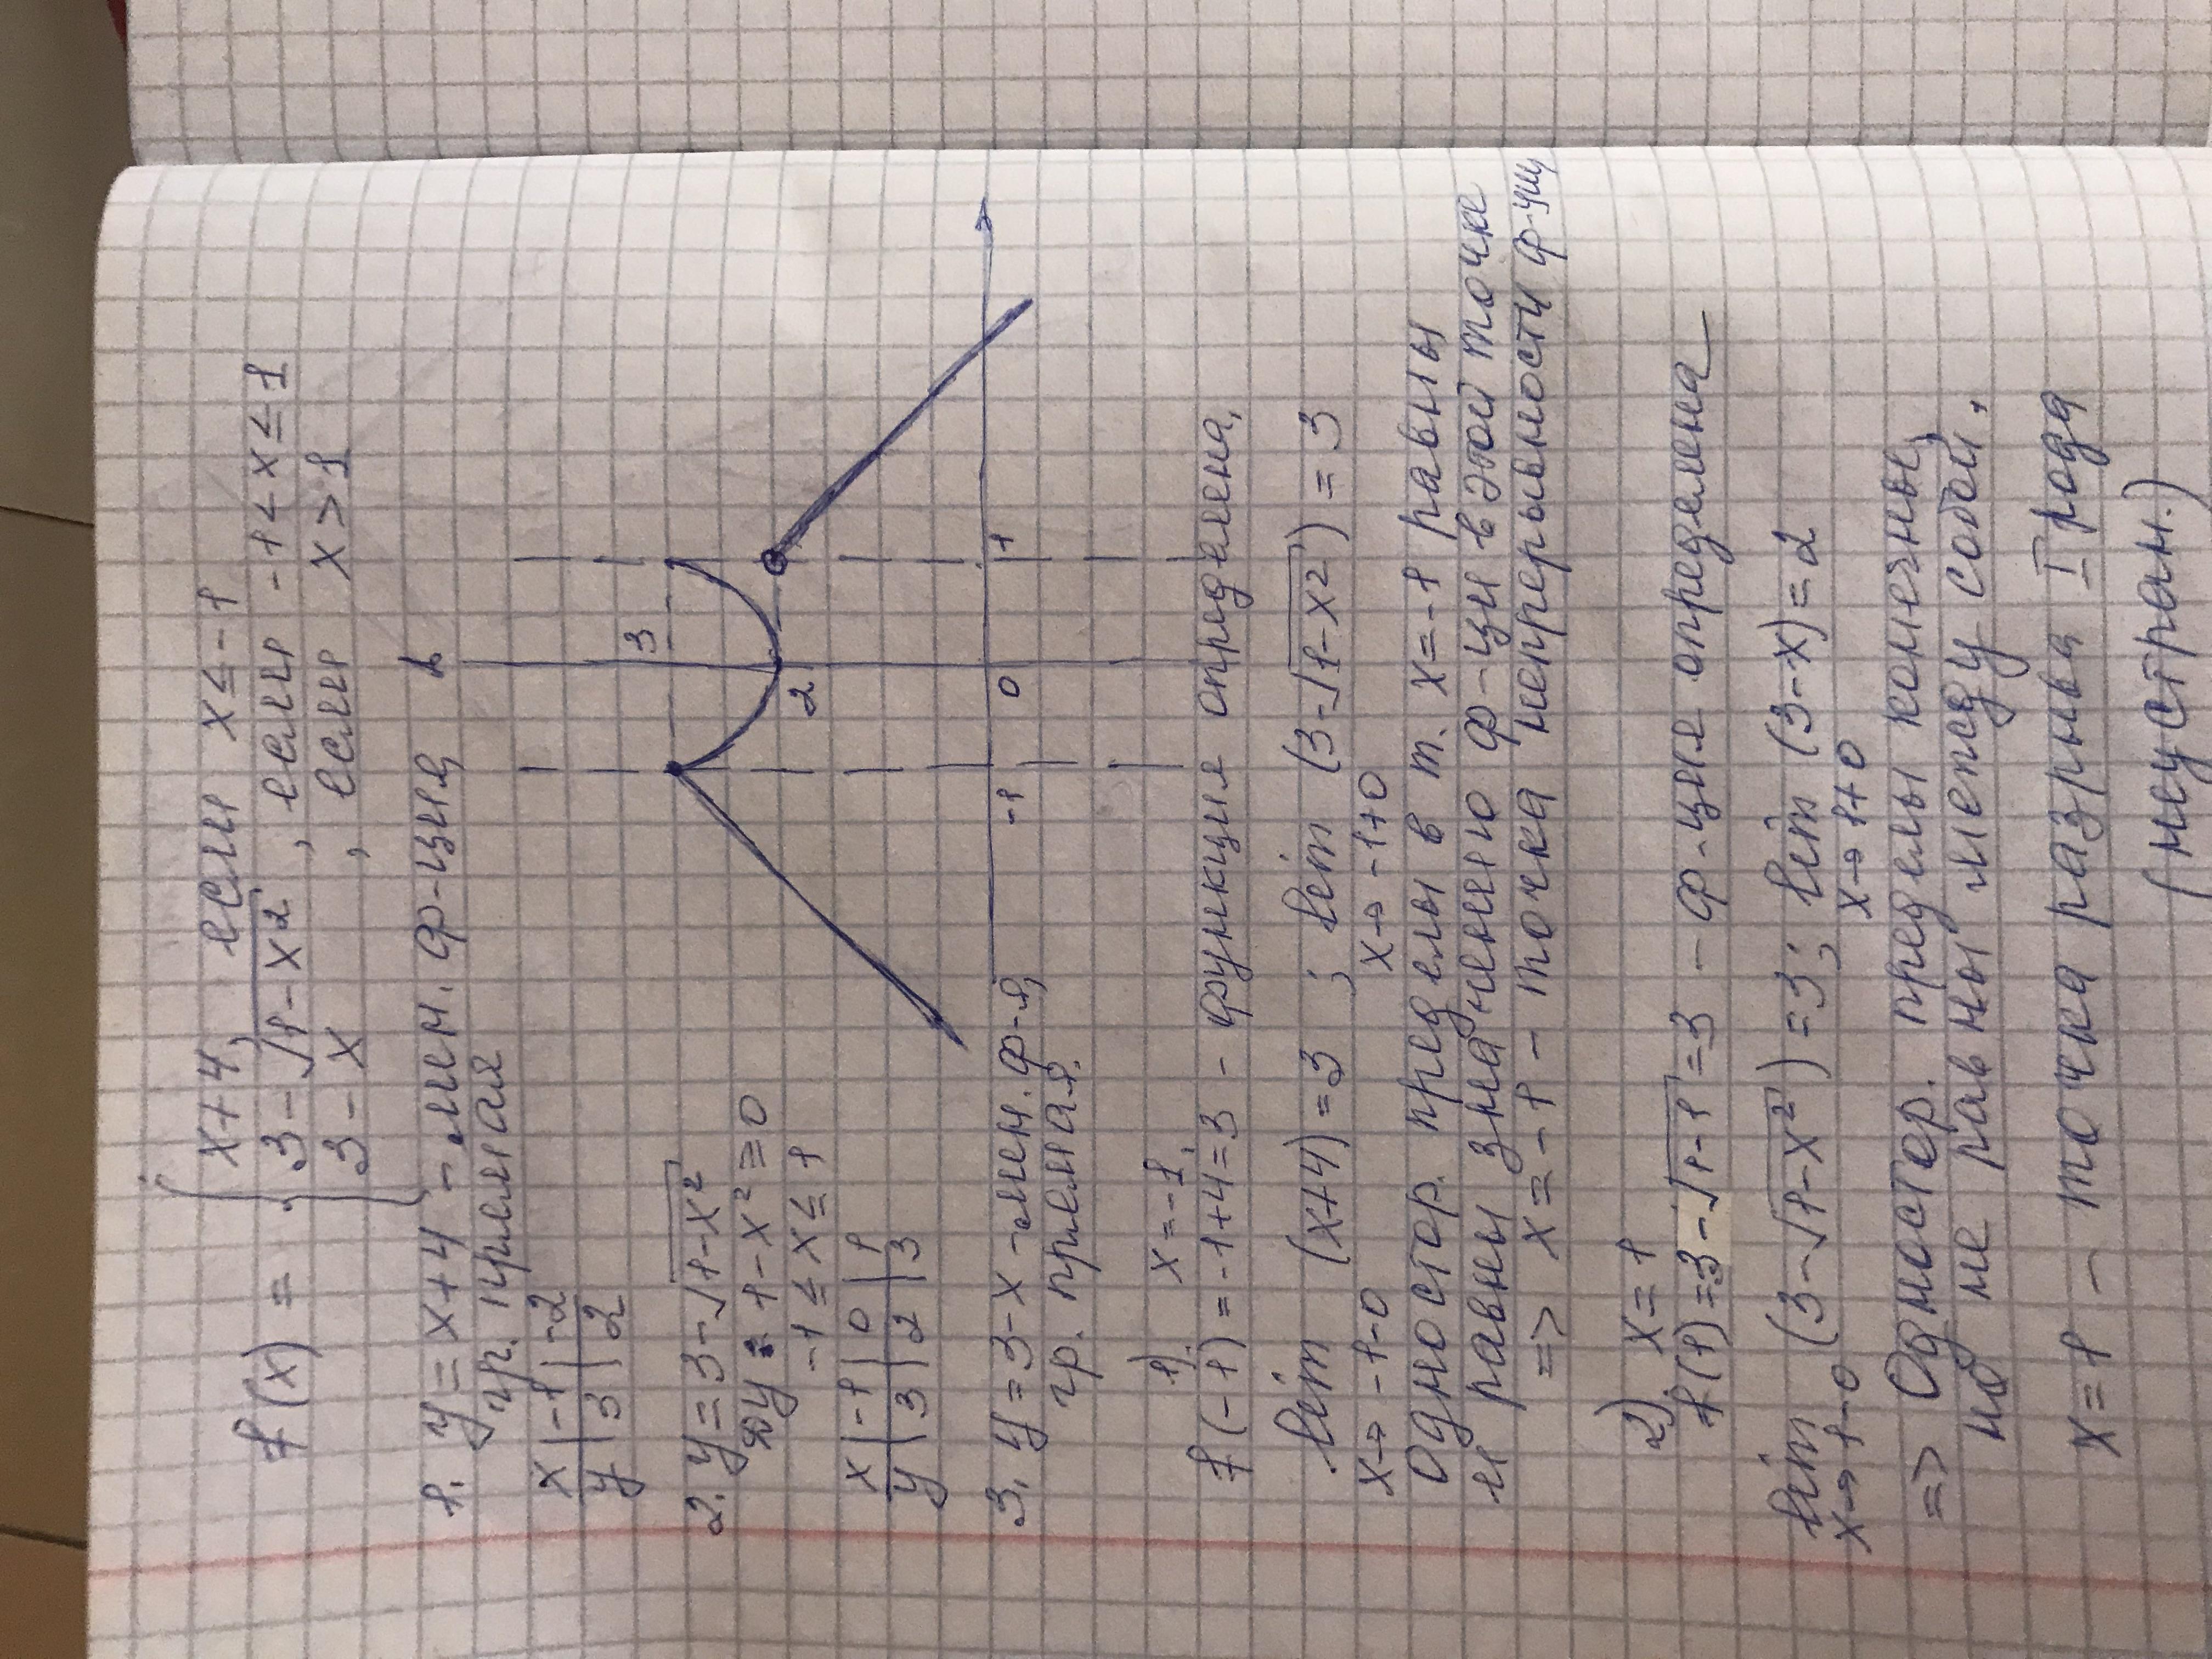 f(x) = { x+4, если x ≤ -1
3-√1-x², если -1 < x ≤ 1
3-x , если x > 1
1. y = x+4 - лин. ф-ция,
гр. прямая
x | -1 | -2
y | 3 | 2
2. y = 3-√1-x²
ДУ: 1-x² ≥ 0
-1 ≤ x ≤ 1
x | -1 | 0 | 1
y | 3 | 2 | 3
3. y = 3-x - лин. ф-я,
гр. прямая.
3
2
-1 0 1
1). x = -1,
f(-1) = -1+4=3 - функция определена,
lim (x+4) = 3 ; lim (3-√1-x²) = 3
x→ -1-0 x→ -1+0
Одностор. пределы в т. x = -1 равны
и равны значению ф-ции в этой точке
=> x = -1 - точка непрерывности ф-ции
2) x = 1
f(1) = 3-√1-1 = 3 - ф-ция определена
lim (3-√1-x²) = 3; lim (3-x) = 2
x→ 1-0 x→ 1+0
=> Одностор. пределы конечные,
но не равны между собой.
x = 1 - точка разрыва I рода
(неустран.)